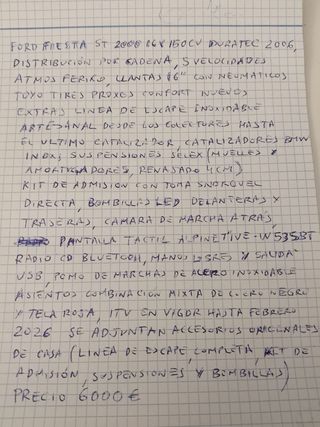 FORD FIESTA ST 2000 16V 150CV DURATEC 2006,
DISTRIBUCIÓN POR CADENA, 5 VELOCIDADES
ATMOSFERICO, LLANTAS 16" CON NEUMATICOS
TOYO TIRES PROXES CONFORT NUEVOS
EXTRAS LINEA DE ESCAPE INOXIDABLE
ARTESANAL DESDE LOS COLECTORES HASTA
EL ULTIMO CATALIZADOR, CATALIZADORES BMW
INOX, SUSPENSIONES SELEX (MUELLES Y
AMORTIGUADORES, REBAJADO 4CM)
KIT DE ADMISION CON TOMA SNORQUEL
DIRECTA, BOMBILLAS LED DELANTERAS Y
TRASERAS, CAMARA DE MARCHA ATRAS,
PANTALLA TACTIL ALPINE IVE-W535BT
RADIO CD BLUETOOH, MANOS LIBRES Y SALIDA
USB, POMO DE MARCHAS DE ACERO INOXIDABLE
ASIENTOS COMBINACION MIXTA DE CUERO NEGRO
Y TELA ROJA, ITV EN VIGOR HASTA FEBRERO
2026 SE ADJUNTAN ACCESORIOS ORIGINALES
DE CASA (LINEA DE ESCAPE COMPLETA KIT DE
ADMISIÓN, SUSPENSIONES Y BOMBILLAS)
PRECIO 6000 €